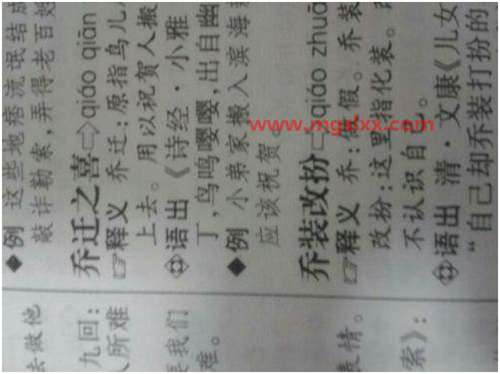 ◆例 这些地痞流氓结成
敲诈勒索,弄得老百姓
乔迁之喜⇨qiáo qiān
☞释义 乔迁:原指鸟儿
上去。用以祝贺人搬
语出《诗经·小雅
丁,鸟鸣嘤嘤,出自幽
◆例 小弟家搬入滨海
应该祝贺
乔装改扮⇨qiáo zhuā
☞释义 乔:假。乔装
改扮:这里指化装。
不认识自
语出 清·文康《儿女
“自己却乔装打扮的
去做他
九回:
人所难
要我们
难。
表情。
索》: